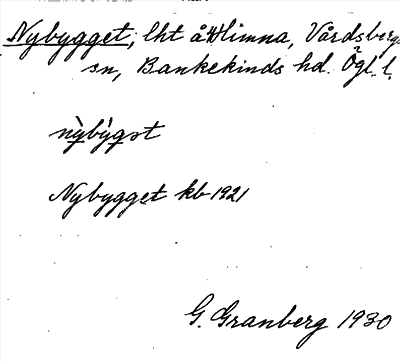 Nybygget, lht å Hlimna, Vårdsbergs
sn, Bankekinds hd. Ögl. l.
nỳbýgət
Nybygget kb 1921
G. Granberg 1930